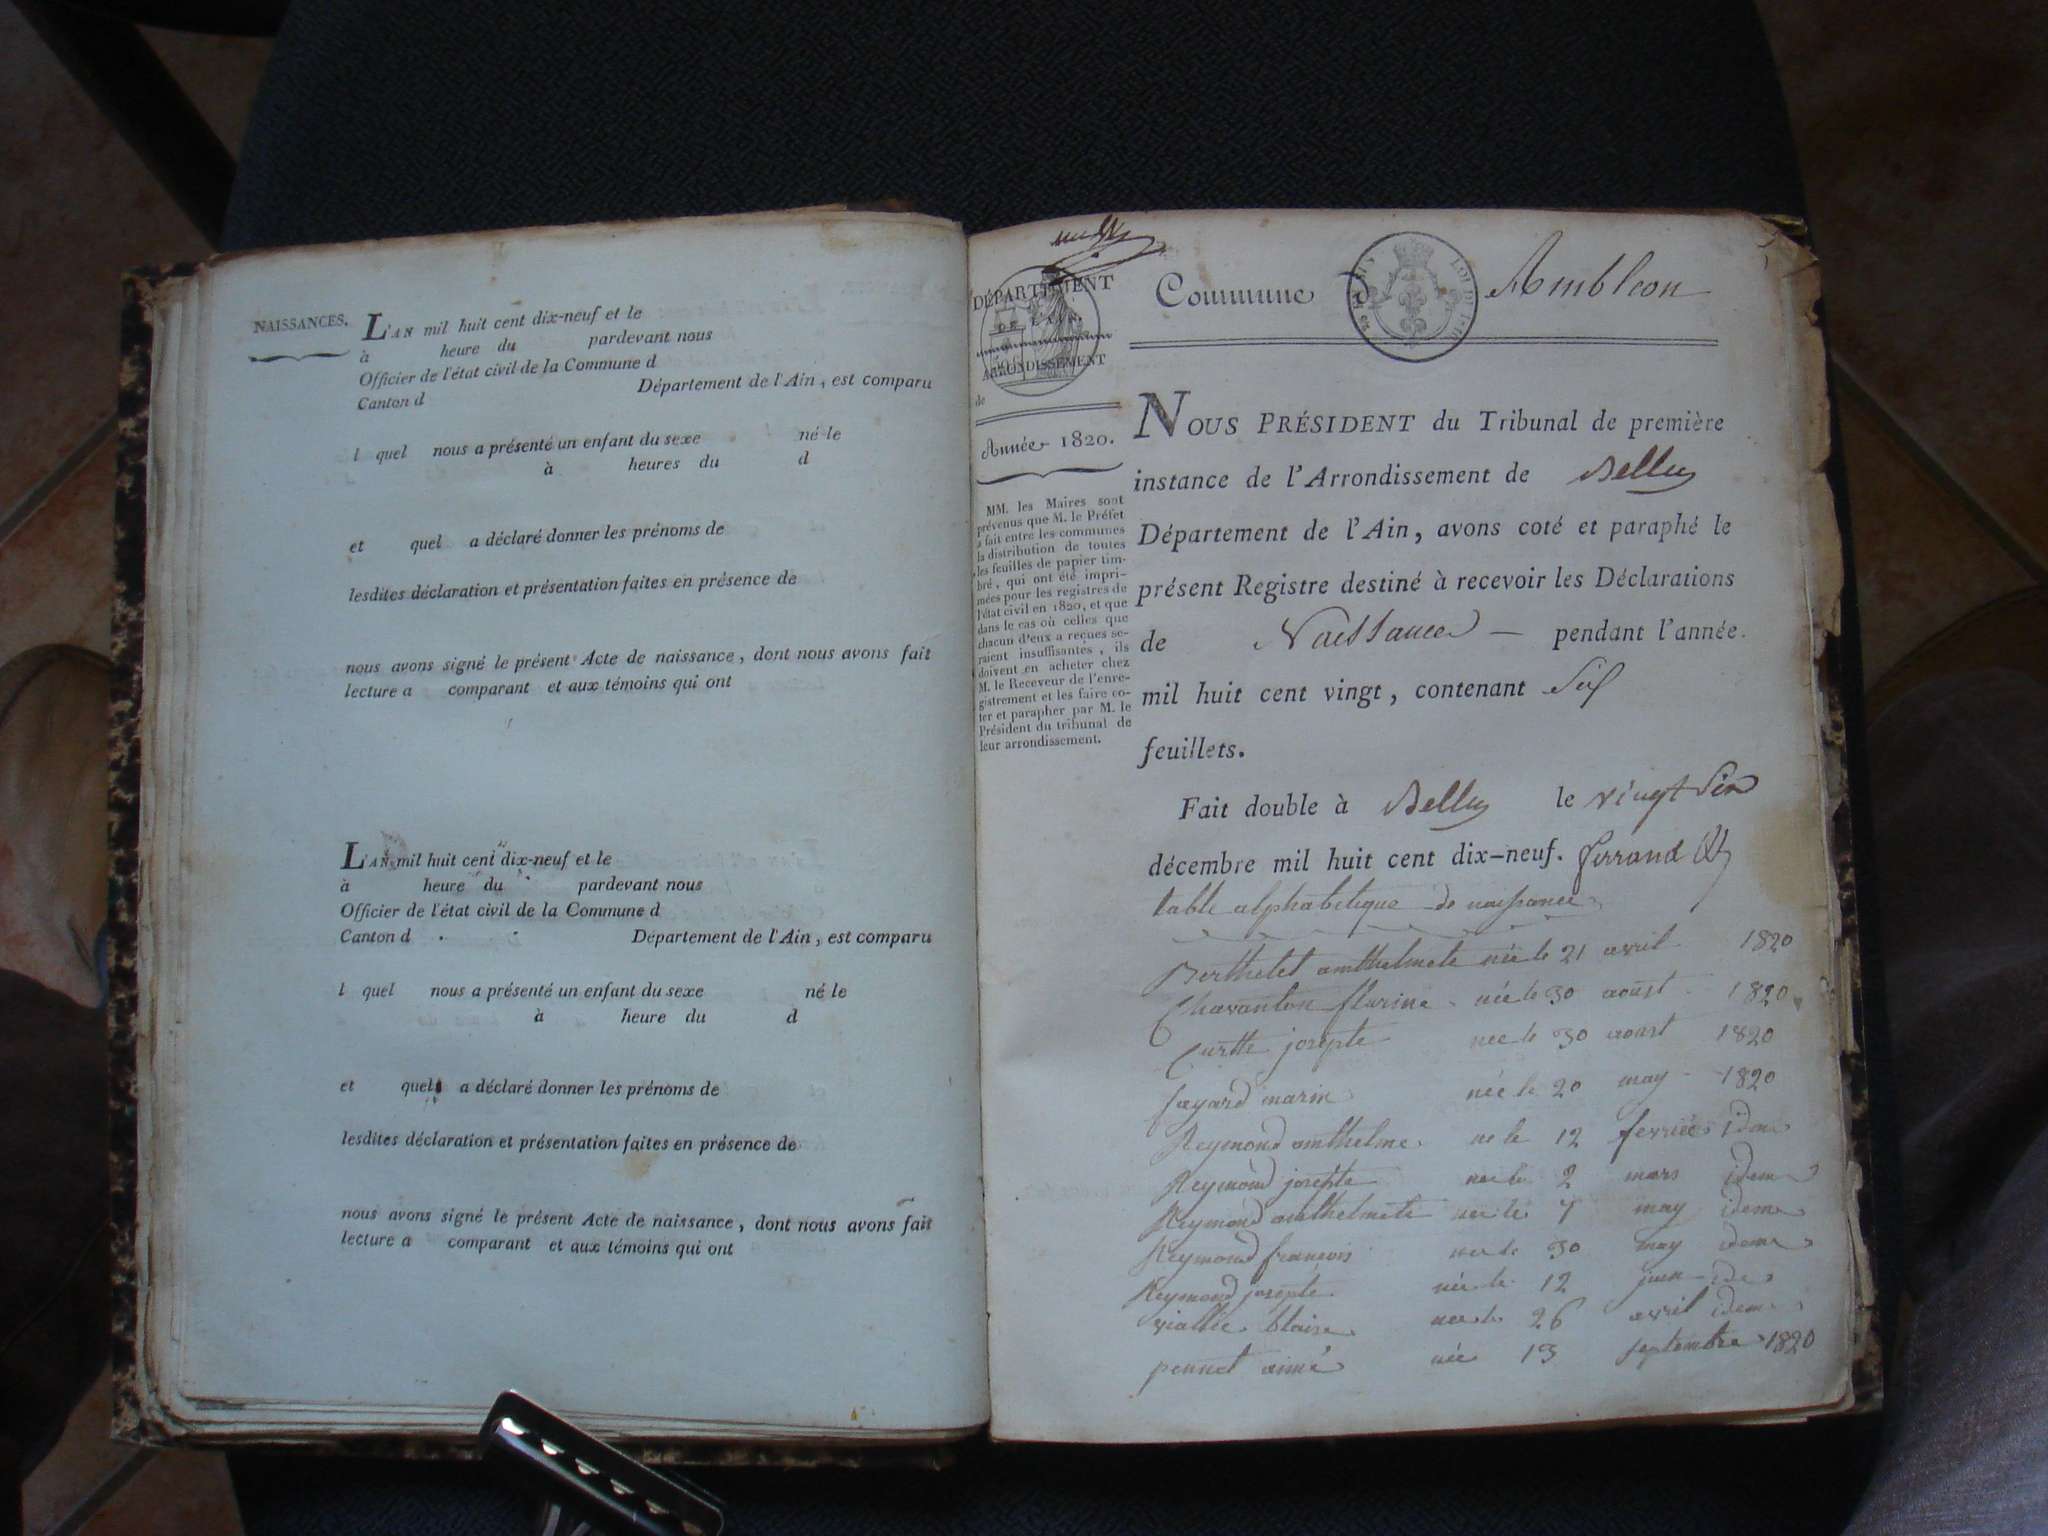 NAISSANCES.
L'AN mil huit cent dix-neuf et le
à heure du pardevant nous
Officier de l'état civil de la Commune d
Canton d Département de l'Ain, est comparu
l quel nous a présenté un enfant du sexe né le
à heures du d
et quel a déclaré donner les prénoms de
lesdites déclaration et présentation faites en présence de
nous avons signé le présent Acte de naissance, dont nous avons fait
lecture a comparant et aux témoins qui ont
L'AN mil huit cent dix-neuf et le
à heure du pardevant nous
Officier de l'état civil de la Commune d
Canton d Département de l'Ain, est comparu
l quel nous a présenté un enfant du sexe né le
à heure du d
et quel a déclaré donner les prénoms de
lesdites déclaration et présentation faites en présence de
nous avons signé le présent Acte de naissance, dont nous avons fait
lecture a comparant et aux témoins qui ont
DÉPARTEMENT
DE L'AIN.
ARRONDISSEMENT
de
Année 1820.
MM. les Maires sont
prévenus que M. le Préfet
a fait entre les communes
la distribution de toutes
les feuilles de papier tim-
bré, qui ont été impri-
mées pour les registres de
l'état civil en 1820, et que
dans le cas où celles que
chacun d'eux a reçues se-
raient insuffisantes, ils
doivent en acheter chez
M. le Receveur de l'enre-
gistrement et les faire co-
ter et parapher par M. le
Président du tribunal de
leur arrondissement.
Commune d Ambléon
NOUS PRÉSIDENT du Tribunal de première
instance de l'Arrondissement de Belley
Département de l'Ain, avons coté et paraphé le
présent Registre destiné à recevoir les Déclarations
de Naissances pendant l'année
mil huit cent vingt, contenant Six
feuillets.
Fait double à Belley le vingt Six
décembre mil huit cent dix-neuf. ferrand
table alphabetique de naissance
Berthelet amthelmete née le 21 avril 1820
Chavanton flurine née le 30 aoust 1820
Curtte josepte née le 30 aoust 1820
fayard marin née le 20 may 1820
Reymond amthelme ne le 12 fevrier idem
Reymond josepte née le 2 mars idem
Reymond amthelmete née le 7 may idem
Reymond francois née le 30 may idem
Reymond josepte née le 12 juin idem
viallee blaise née le 26 avril idem
pennet aimé née 13 septembre 1820